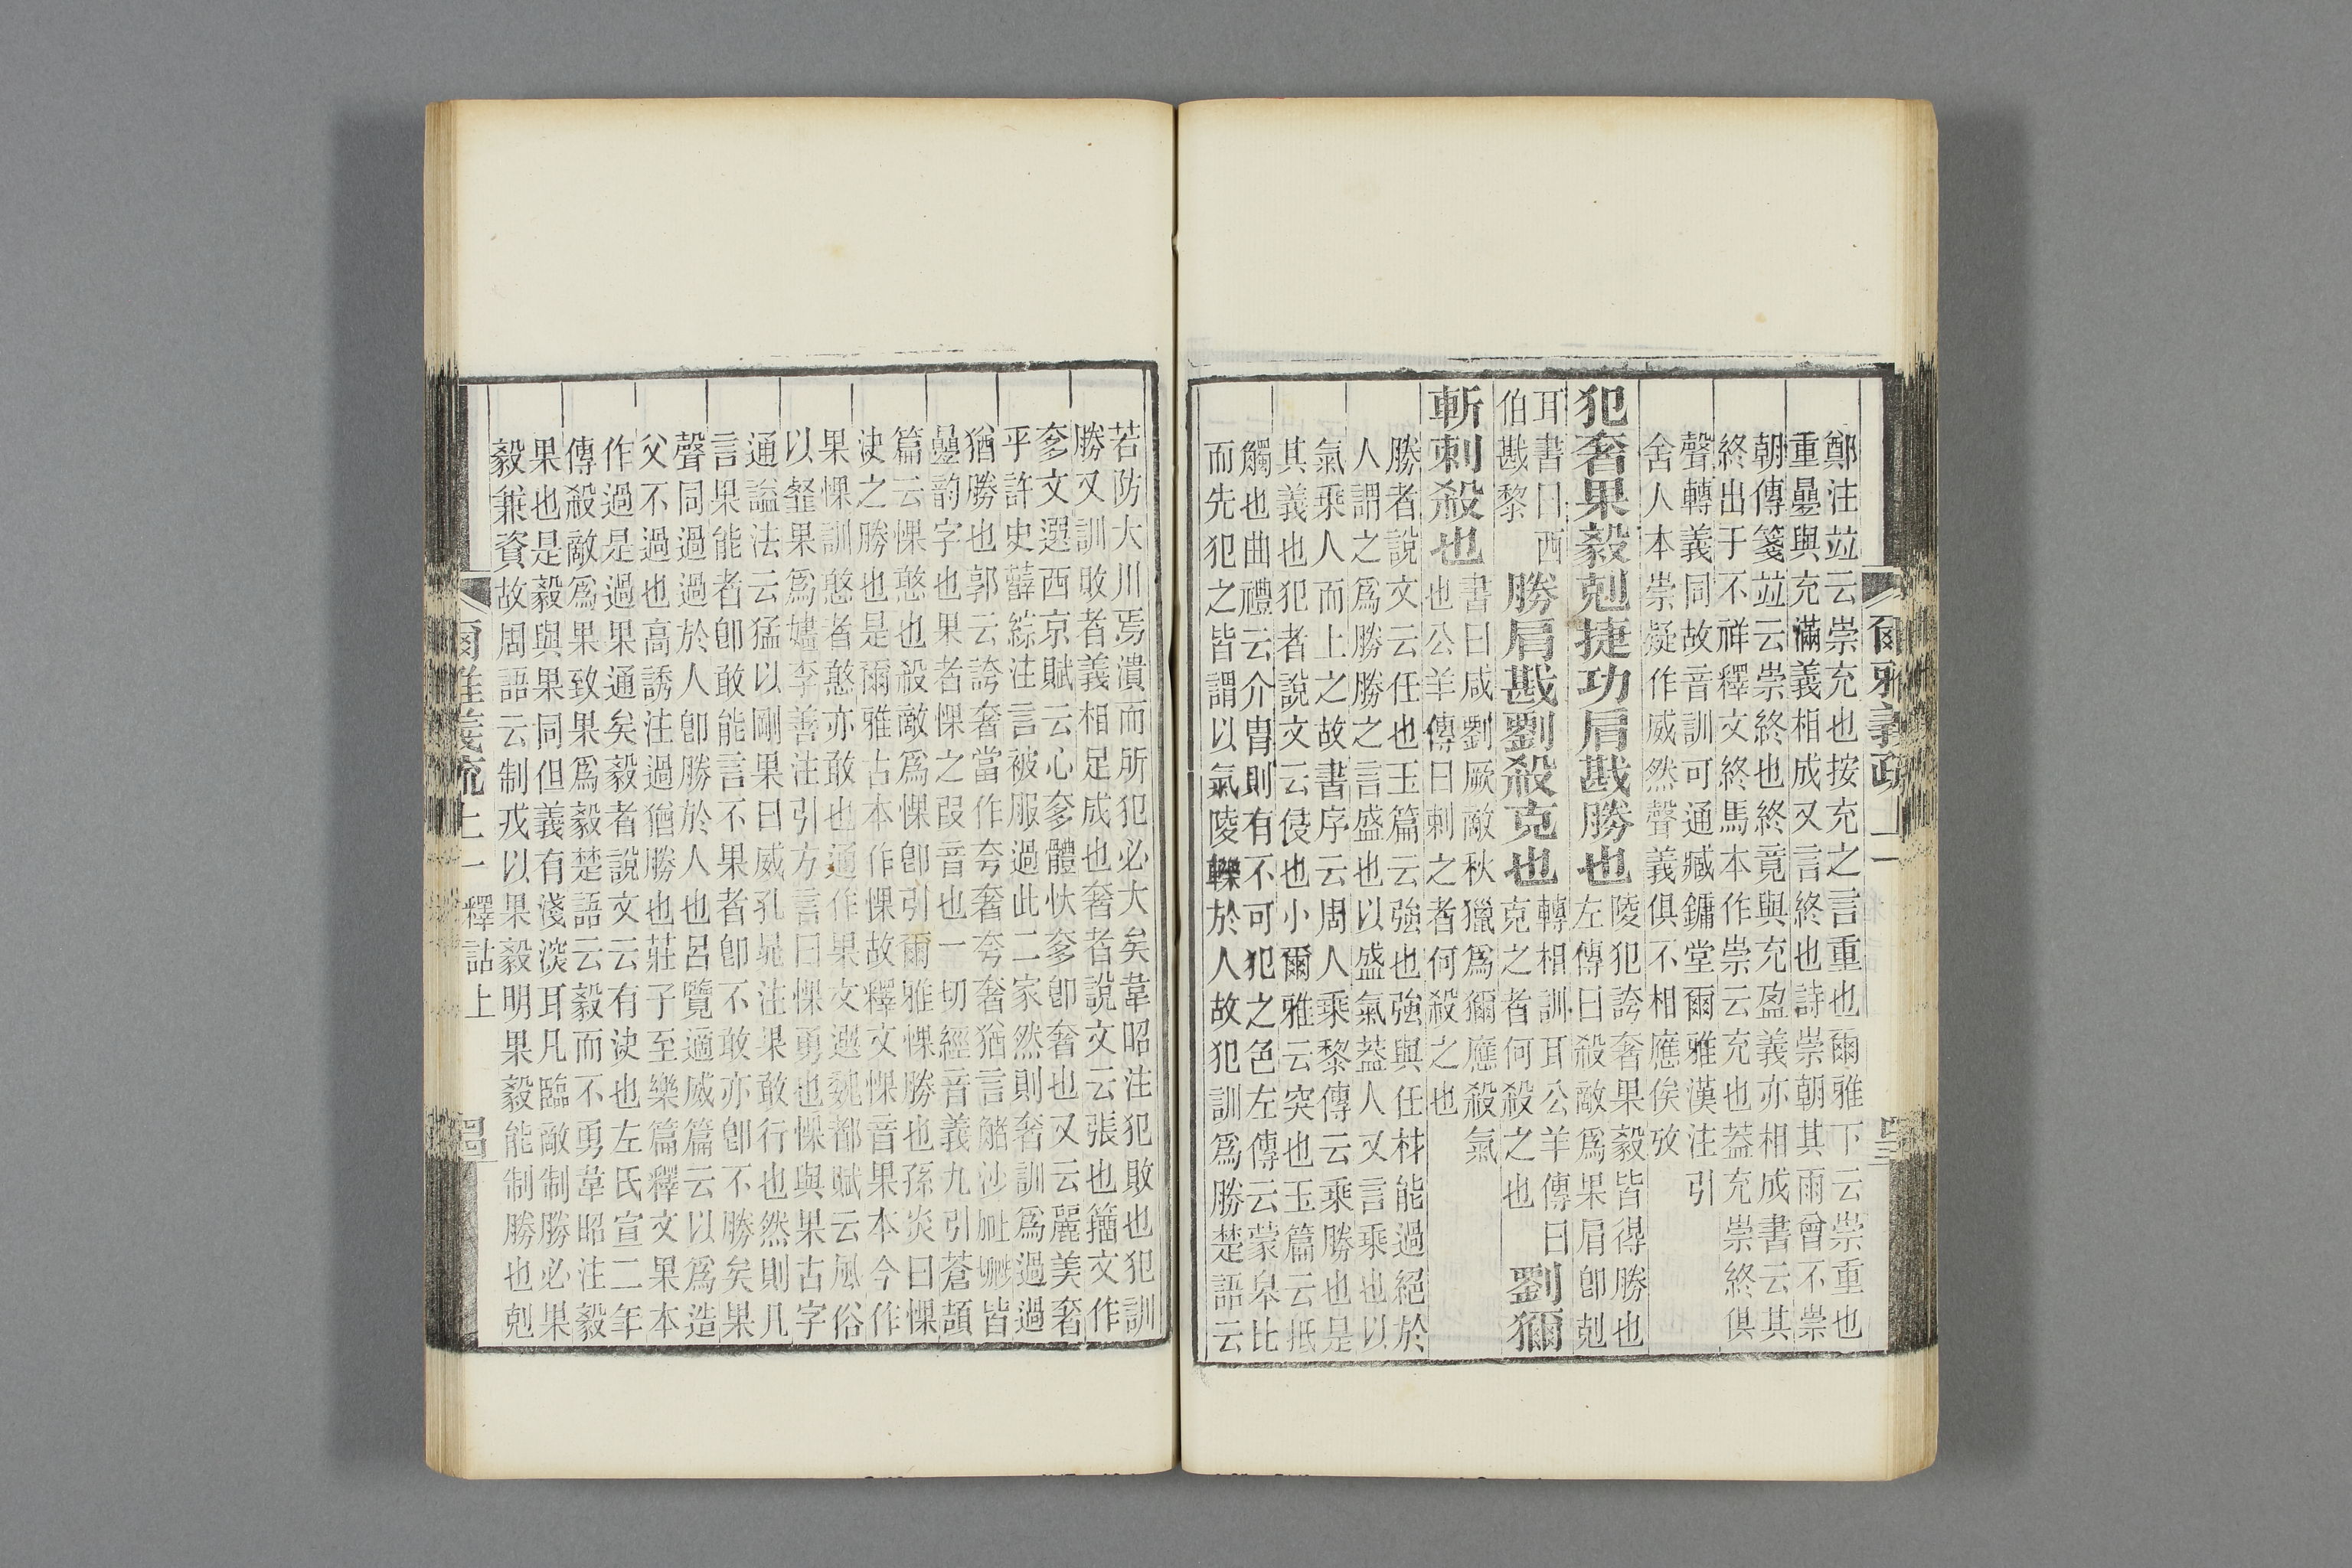 爾雅義疏 上一
鄭注竝云崇充也按充之言重也爾雅下云崇重也
重曡與充滿義相成又言終也詩崇朝其雨曾不崇
朝傳箋竝云崇終也終竟與充盈義亦相成書云其
終出于不祥釋文終馬本作崇云充也葢充崇終俱
聲轉義同故音訓可通臧鏞堂爾雅漢注引
舍人本崇疑作威然聲義俱不相應俟攷
犯奢果毅剋捷功肩戡勝也 陵犯誇奢果毅皆得勝也
左傳曰殺敵爲果肩卽剋
耳書曰西
伯戡黎
勝肩戡劉殺克也 轉相訓耳公羊傳曰
克之者何殺之也
劉獮
斬刺殺也 書曰咸劉厥敵秋獵爲獮應殺氣
也公羊傳曰刺之者何殺之也
勝者說文云任也玉篇云強也強與任材能過絕於
人謂之爲勝勝之言盛也以盛氣葢人又言乘也以
氣乘人而上之故書序云周人乘黎傳云乘勝也是
其義也犯者說文云侵也小爾雅云突也玉篇云抵
觸也曲禮云介冑則有不可犯之色左傳云蒙皋比
而先犯之皆謂以氣陵轢於人故犯訓爲勝楚語云
若防大川焉潰而所犯必大矣韋昭注犯敗也犯訓
勝又訓敗者義相足成也奢者說文云張也籒文作
奓文選西京賦云心奓體忕奓卽奢也又云麗美奢
乎許史薛綜注言被服過此二家然則奢訓爲過過
猶勝也郭云誇奢當作夸奢夸奢猶言觰沙皆
曡韵字也果者惈之叚音也一切經音義九引蒼頡
篇云惈憨也殺敵爲惈卽引爾雅惈勝也孫炎曰惈
決之勝也是爾雅古本作惈故釋文惈音果本今作
果惈訓憨者憨亦敢也通作果文選魏都賦云風俗
以韰果爲嫿李善注引方言曰惈勇也惈與果古字
通謚法云猛以剛果曰威孔晁注果敢行也然則凡
言果能者卽敢能言不果者卽不敢亦卽不勝矣果
聲同過過於人卽勝於人也呂覽適威篇云以爲造
父不過也高誘注過猶勝也莊子至樂篇釋文果本
作過是過果通矣毅者說文云有決也左氏宣二年
傳殺敵爲果致果爲毅楚語云毅而不勇韋昭注毅
果也是毅與果同但義有淺深耳凡臨敵制勝必果
毅兼資故周語云制戎以果毅明果毅能制勝也剋
爾雅義疏 上一 釋詁上